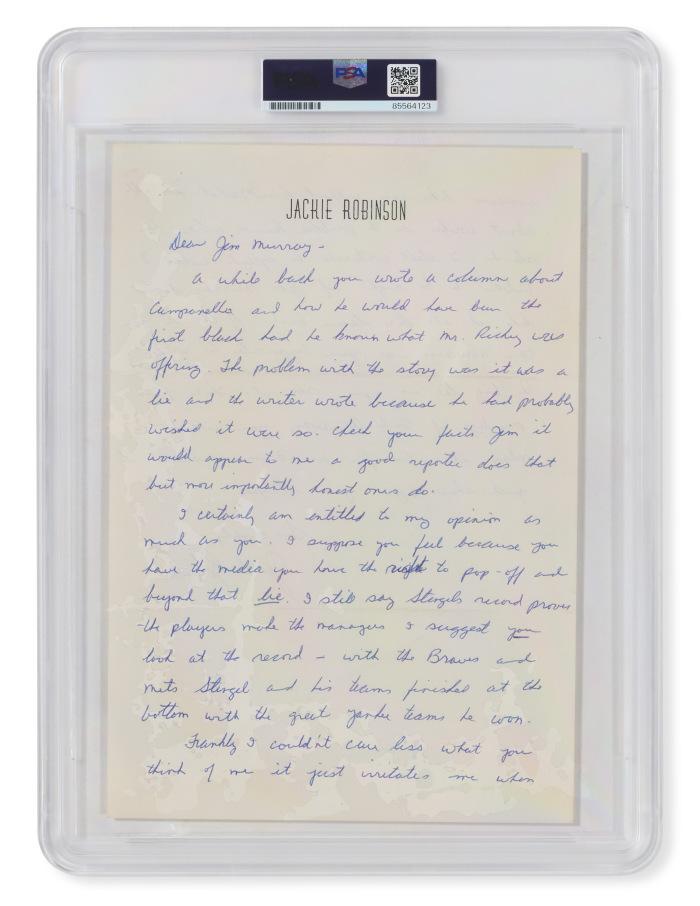 PSA
85564123
JACKIE ROBINSON
Dear Jim Murray -
A while back you wrote a column about
Campanella and how he would have been the
first black had he known what Mr. Rickey was
offring. The problem with the story was it was a
lie and the writer wrote because he had probably
wished it were so. Check your facts Jim it
would appear to me a good reporter does that
but more importantly honest ones do.
I certainly am entitled to my opinion as
much as you. I suppose you feel because you
have the media you have the right to pop-off and
beyond that lie. I still say Stengels record proves
the players make the managers I suggest you
look at the record - with the Braves and
Mets Stengel and his teams finished at the
bottom with the great Yankee teams he won.
Frankly I couldn't care less what you
think of me it just irritates me when